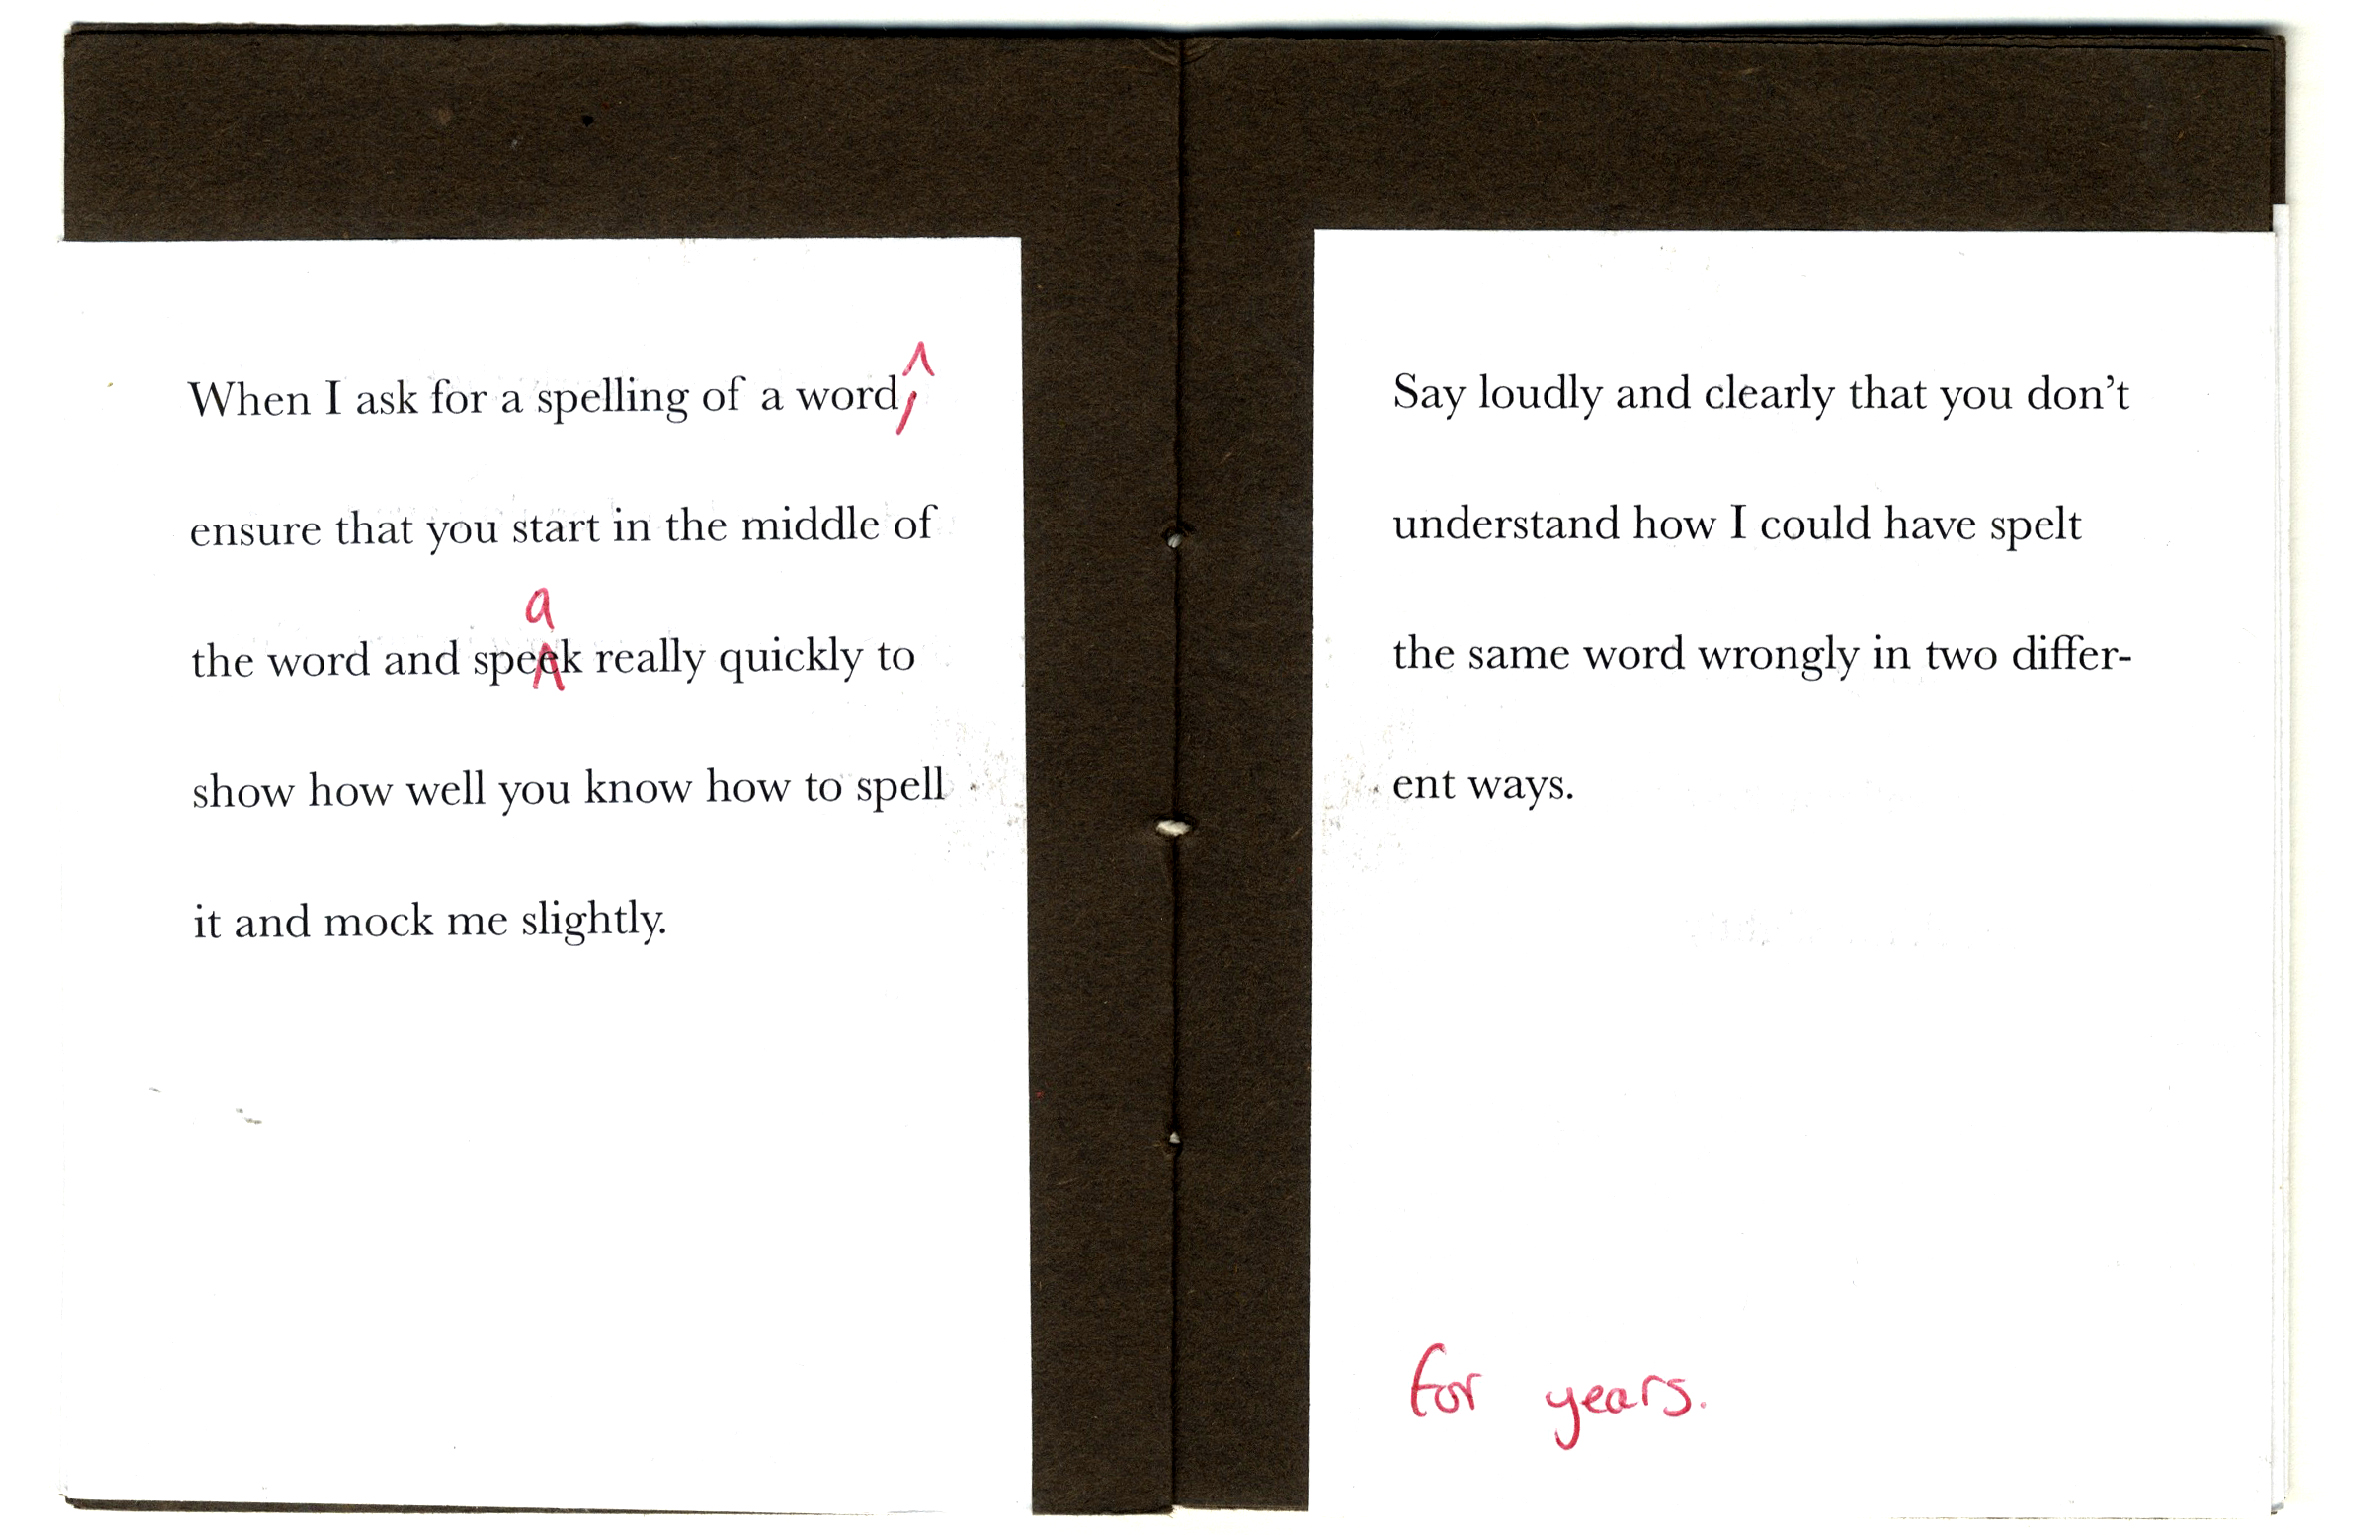 When I ask for a spelling of a word,
ensure that you start in the middle of
a
the word and speek really quickly to
show how well you know how to spell
it and mock me slightly.
Say loudly and clearly that you don’t
understand how I could have spelt
the same word wrongly in two differ-
ent ways.
for years.